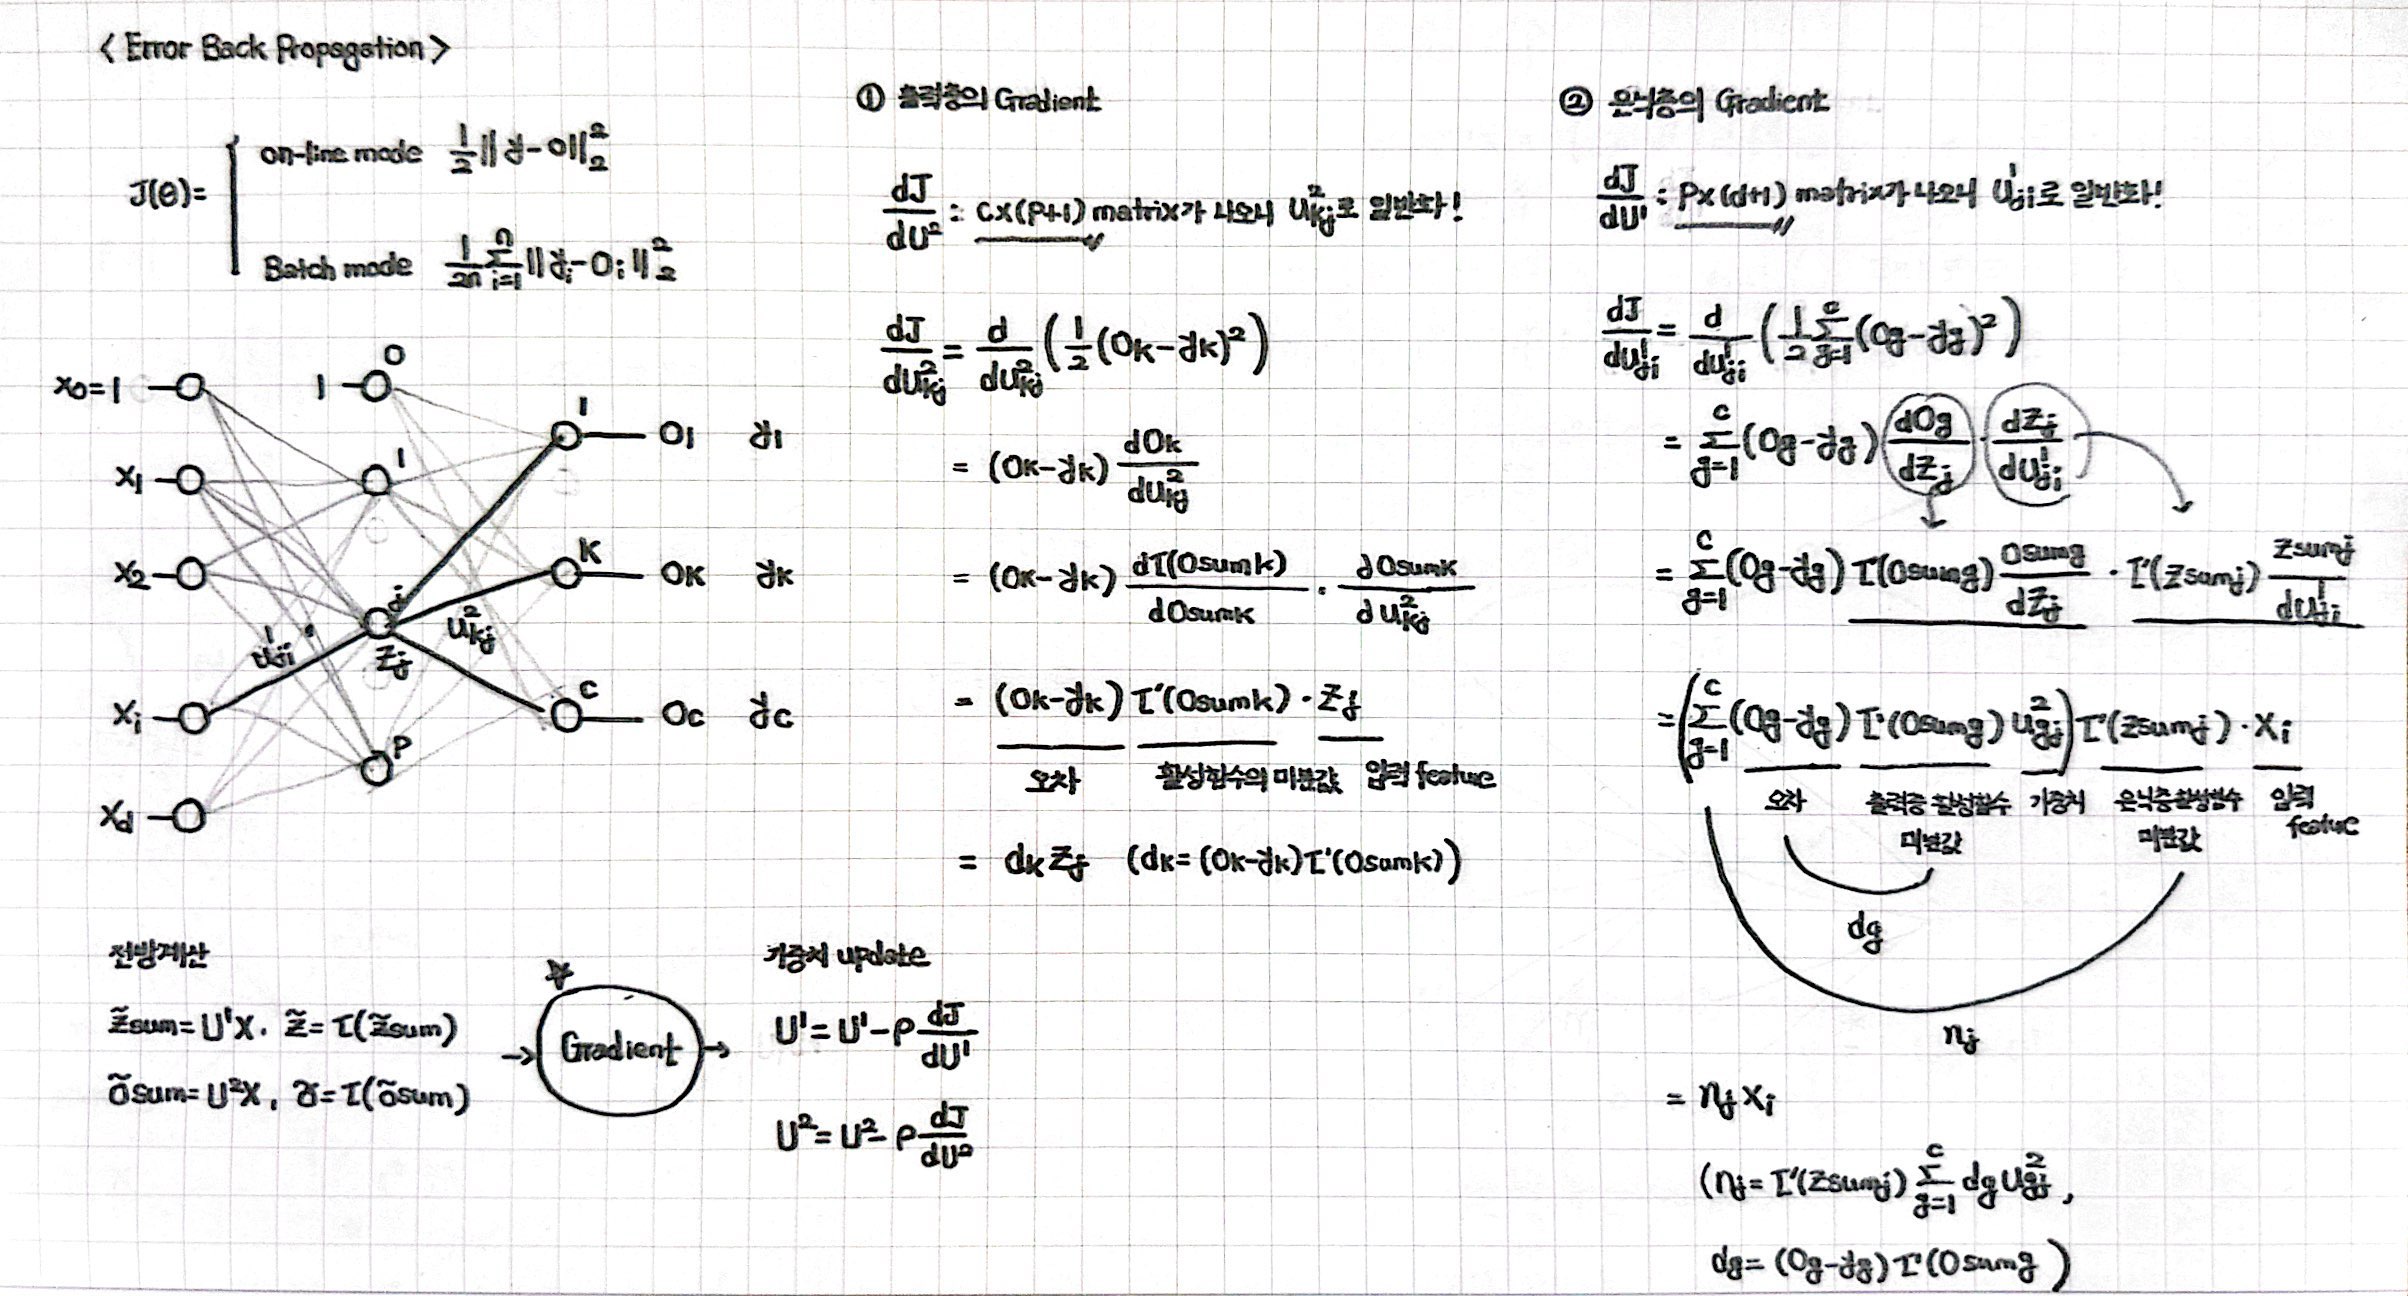 < Error Back Propagation >
J(θ)=
on-line mode 1/2 ||y-o||²₂
Batch mode 1/2n Σⁿᵢ₌₁ ||yᵢ-Oᵢ||²₂
x₀=1
x₁
x₂
xᵢ
x_d
1
0
1
j
Z_j
P
U¹_ji
U²_kj
1 O₁ y₁
K O_K y_K
C O_C y_C
전방계산
z̃sum=U¹X. z̃=τ(z̃sum)
õsum=U²X, õ=τ(õsum)
→ Gradient →
가중치 update
U¹=U¹-ρ dJ/dU¹
U²=U²-ρ dJ/dU²
① 출력층의 Gradient
dJ/dU² : C×(P+1) matrix가 나오니 U²_kj로 일반화!
dJ/dU²_kj = d/dU²_kj (1/2 (O_K-y_K)²)
= (O_K-y_K) dO_K/dU²_kj
= (O_K-y_K) dτ(Osumk)/dOsumk · dOsumk/dU²_kj
= (O_K-y_K) τ'(Osumk) · Z_j
오차 활성함수의 미분값 입력 feature
= d_K Z_j (d_K=(O_K-y_K)τ'(Osumk))
② 은닉층의 Gradient
dJ/dU¹ : P×(d+1) matrix가 나오니 U¹_ji로 일반화!
dJ/dU¹_ji = d/dU¹_ji (1/2 Σᶜ_g=1 (O_g-y_g)²)
= Σᶜ_g=1 (O_g-y_g) dO_g/dZ_j · dZ_j/dU¹_ji
= Σᶜ_g=1 (O_g-y_g) τ'(Osumg) Osumg/dZ_j · τ'(Zsumj) Zsumj/dU¹_ji
= (Σᶜ_g=1 (O_g-y_g) τ'(Osumg) U²_gj) τ'(Zsumj) · X_i
오차 출력층 활성함수 가중치 은닉층 활성함수 입력
미분값 미분값 feature
d_g
η_j
= η_j X_i
(η_j= τ'(Zsumj) Σᶜ_g=1 d_g U²_gj,
d_g= (O_g-y_g) τ'(Osumg)